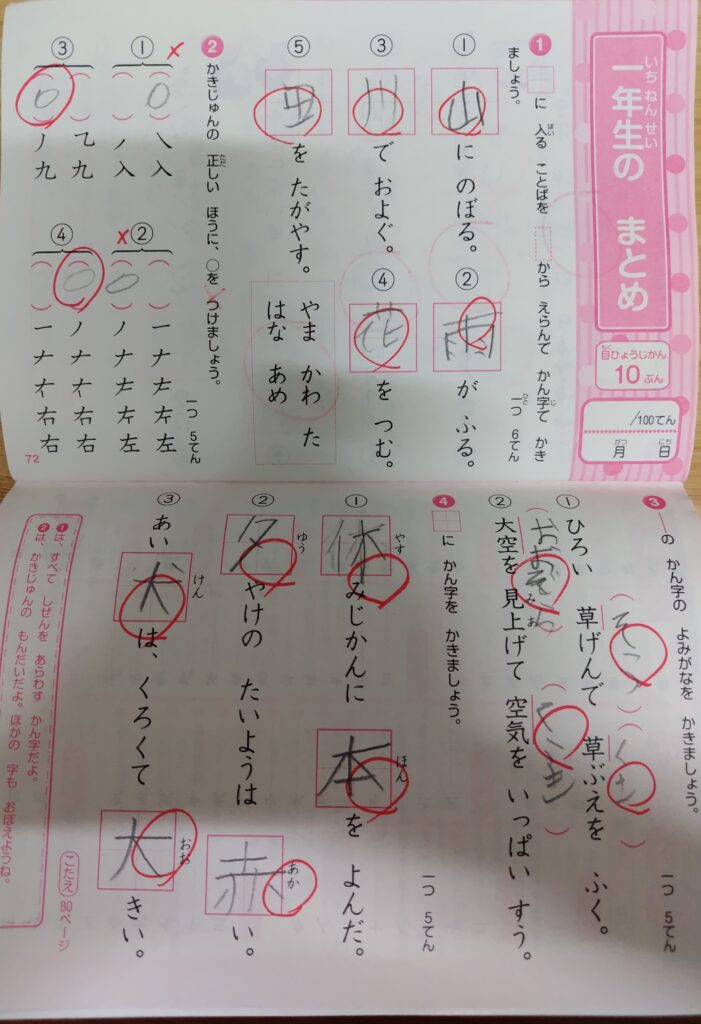 一年生の まとめ
いち ねん せい
目ひょうじかん
10ぷん
/100てん
月 日
がつ にち
1 □に 入る ことばを から えらんで かん字で かき
ましょう。
一つ 6てん
① 山 に のぼる。
② 雨 が ふる。
③ 川 で およぐ。
④ 花 を つむ。
⑤ 田 を たがやす。
やま かわ た
はな あめ
2 かきじゅんの 正しい ほうに、○を つけましょう。
一つ 5てん
①
( ○ ) 八 入
( ) ノ 入
②
( ) 一 ナ 𠂇 左 左
( ○ ) ノ ナ 左 左
③
( ) 乁 九
( ○ ) ノ 九
④
( ○ ) ノ ナ 右 右
( ) 一 ナ 右 右
72
3 ―の かん字の よみがなを かきましょう。
一つ 5てん
① ひろい 草げんで 草ぶえを ふく。
(そう) (くさ)
② 大空を 見上げて 空気を いっぱい すう。
(おおぞら) (くうき)
4 □に かん字を かきましょう。
一つ 5てん
① 休みじかんに 本を よんだ。
やす ほん
② 夕やけの たいようは 赤い。
ゆう あか
③ あい犬は、くろくて 大きい。
けん おお
1は、すべて しぜんを あらわす かん字だよ。
2は、かきじゅんの もんだいだよ。ほかの 字も おぼえようね。
こたえ 80ページ